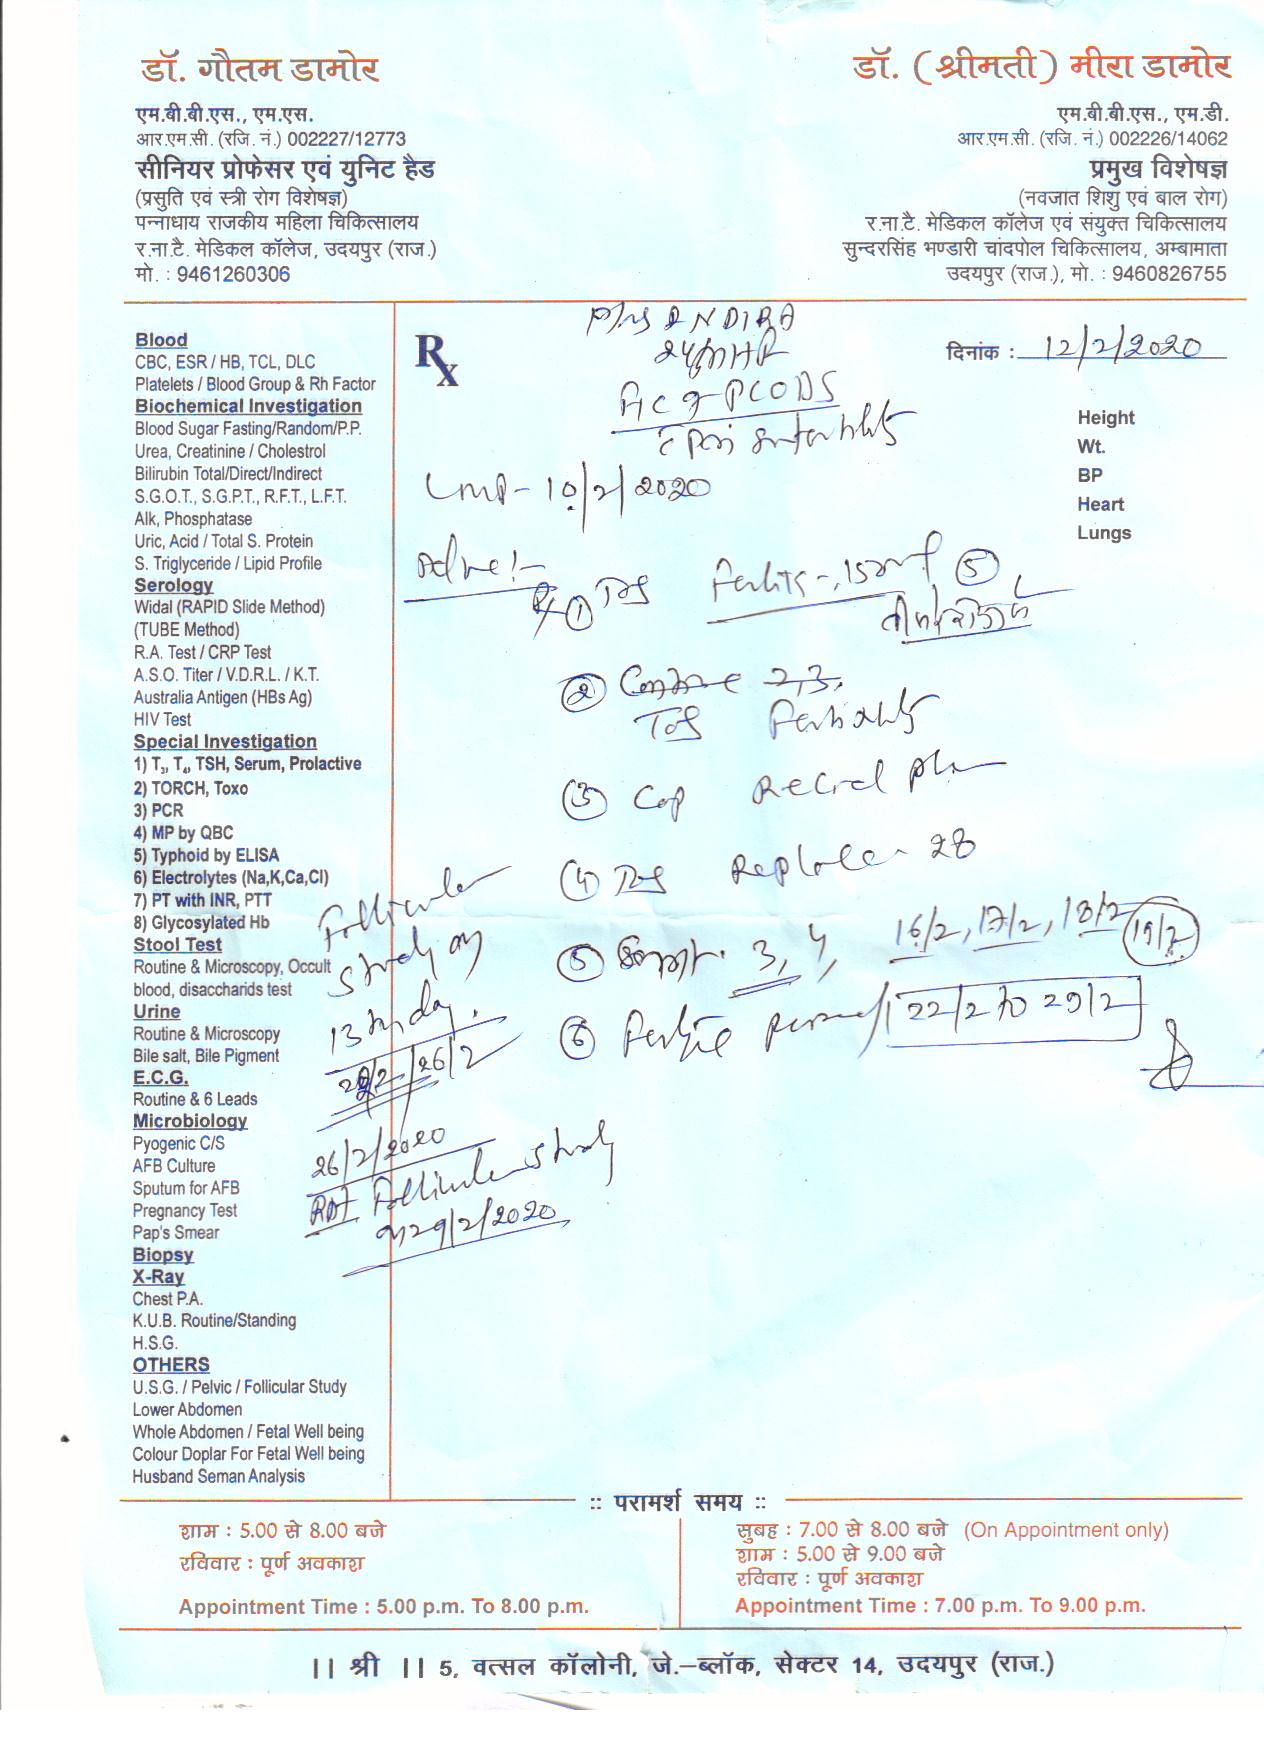 डॉ. गौतम डामोर
एम.बी.बी.एस., एम.एस.
आर.एम.सी. (रजि. नं.) 002227/12773
सीनियर प्रोफेसर एवं युनिट हैड
(प्रसुति एवं स्त्री रोग विशेषज्ञ)
पन्नाधाय राजकीय महिला चिकित्सालय
र.ना.टै. मेडिकल कॉलेज, उदयपुर (राज.)
मो. : 9461260306
डॉ. (श्रीमती) मीरा डामोर
एम.बी.बी.एस., एम.डी.
आर.एम.सी. (रजि. नं.) 002226/14062
प्रमुख विशेषज्ञ
(नवजात शिशु एवं बाल रोग)
र.ना.टै. मेडिकल कॉलेज एवं संयुक्त चिकित्सालय
सुन्दरसिंह भण्डारी चांदपोल चिकित्सालय, अम्बामाता
उदयपुर (राज.), मो. : 9460826755
Blood
CBC, ESR / HB, TCL, DLC
Platelets / Blood Group & Rh Factor
Biochemical Investigation
Blood Sugar Fasting/Random/P.P.
Urea, Creatinine / Cholestrol
Bilirubin Total/Direct/Indirect
S.G.O.T., S.G.P.T., R.F.T., L.F.T.
Alk, Phosphatase
Uric, Acid / Total S. Protein
S. Triglyceride / Lipid Profile
Serology
Widal (RAPID Slide Method)
(TUBE Method)
R.A. Test / CRP Test
A.S.O. Titer / V.D.R.L. / K.T.
Australia Antigen (HBs Ag)
HIV Test
Special Investigation
1) T3, T4, TSH, Serum, Prolactive
2) TORCH, Toxo
3) PCR
4) MP by QBC
5) Typhoid by ELISA
6) Electrolytes (Na,K,Ca,Cl)
7) PT with INR, PTT
8) Glycosylated Hb
Stool Test
Routine & Microscopy, Occult
blood, disaccharids test
Urine
Routine & Microscopy
Bile salt, Bile Pigment
E.C.G.
Routine & 6 Leads
Microbiology
Pyogenic C/S
AFB Culture
Sputum for AFB
Pregnancy Test
Pap's Smear
Biopsy
X-Ray
Chest P.A.
K.U.B. Routine/Standing
H.S.G.
OTHERS
U.S.G. / Pelvic / Follicular Study
Lower Abdomen
Whole Abdomen / Fetal Well being
Colour Doplar For Fetal Well being
Husband Seman Analysis
Rx
INDIRA
दिनांक : 12/2/2020
PCODS
Height
Wt.
BP
Heart
Lungs
LMP - 10/2/2020
①
⑤
② 2,3,
③ Cap
④ 28
⑤ 3, 4, 16/2, 17/2, 18/2 19/2
⑥ 22/2 to 29/2
Follicular
study on
13th day.
26/2
26/2/2020
Follicular study
on 29/2/2020
:: परामर्श समय ::
शाम : 5.00 से 8.00 बजे
रविवार : पूर्ण अवकाश
Appointment Time : 5.00 p.m. To 8.00 p.m.
सुबह : 7.00 से 8.00 बजे (On Appointment only)
शाम : 5.00 से 9.00 बजे
रविवार : पूर्ण अवकाश
Appointment Time : 7.00 p.m. To 9.00 p.m.
|| श्री || 5, वत्सल कॉलोनी, जे.-ब्लॉक, सेक्टर 14, उदयपुर (राज.)